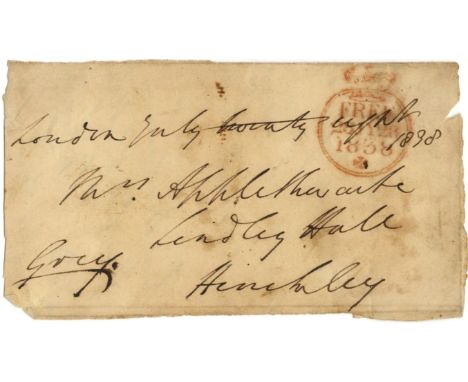 London July twenty eight 1838
Mrs Applethwaite
Lindley Hall
Hinckley
Grey.
FREE
1838